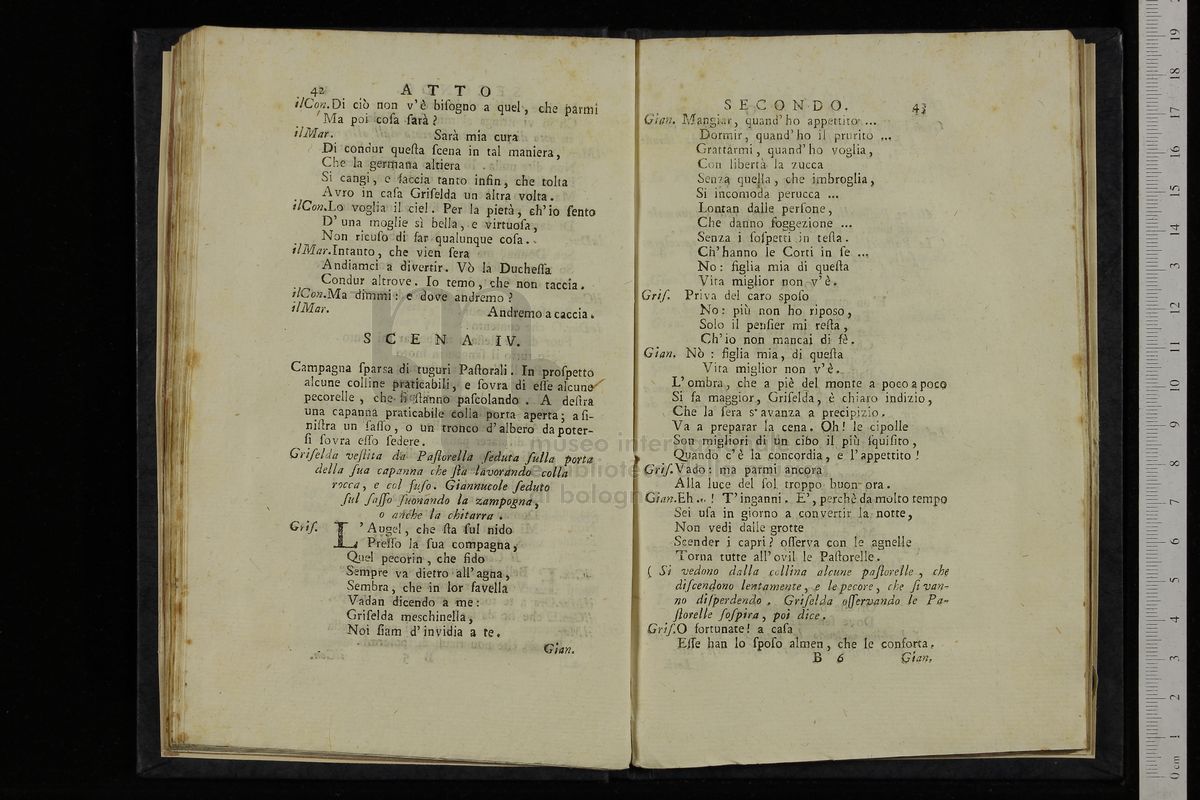 42 ATTO
ilCon. Di ciò non v'è biſogno a quel, che parmi
Ma poi coſa ſarà?
ilMar. Sarà mia cura
Di condur queſta ſcena in tal maniera,
Che la germana altiera
Si cangi, e faccia tanto infin, che tolta
Avrò in caſa Griſelda un altra volta.
ilCon. Lo voglia il ciel. Per la pietà, ch'io ſento
D'una moglie sì bella, e virtuoſa,
Non ricuſo di far qualunque coſa.
ilMar. Intanto, che vien ſera
Andiamci a divertir. Vò la Ducheſſa
Condur altrove. Io temo, che non taccia.
ilCon. Ma dimmi: e dove andremo?
ilMar. Andremo a caccia.
SCENA IV.
Campagna ſparsa di tuguri Paſtorali. In proſpetto
alcune colline praticabili, e ſovra di eſſe alcune
pecorelle, che ſi ſtanno paſcolando. A deſtra
una capanna praticabile colla porta aperta; a ſi-
niſtra un ſaſſo, o un tronco d'albero da poter-
ſi ſovra eſſo ſedere.
Griſelda veſtita da Paſtorella ſeduta ſulla porta
della ſua capanna che ſta lavorando colla
rocca, e col fuſo. Giannucole ſeduto
ſul ſaſſo ſuonando la zampogna,
o anche la chitarra.
Griſ. L'Augel, che ſta ſul nido
Preſſo la ſua compagna,
Quel pecorin, che fido
Sempre va dietro all'agna,
Sembra, che in lor favella
Vadan dicendo a me:
Griſelda meſchinella,
Noi ſiam d'invidia a te.
Gian.
SECONDO. 43
Gian. Mangiar, quand'ho appettito ...
Dormir, quand'ho il prurito ...
Grattarmi, quand'ho voglia,
Con libertà la zucca
Senza quella, che imbroglia,
Si incomoda perucca ...
Lontan dalle perſone,
Che danno ſoggezione ...
Senza i ſoſpetti in teſta.
Ch'hanno le Corti in ſe ...
No: figlia mia di queſta
Vita miglior non v'è.
Griſ. Priva del caro ſpoſo
No: più non ho riposo,
Solo il penſier mi reſta,
Ch'io non mancai di fè.
Gian. Nò: figlia mia, di queſta
Vita miglior non v'è.
L'ombra, che a piè del monte a poco a poco
Si fa maggior, Griſelda, è chiaro indizio,
Che la ſera s'avanza a precipizio.
Va a preparar la cena. Oh! le cipolle
Son migliori di un cibo il più ſquiſito,
Quando c'è la concordia, e l'appettito!
Griſ. Vado: ma parmi ancora
Alla luce del ſol troppo buon'ora.
Gian. Eh ... ! T'inganni. E', perchè da molto tempo
Sei uſa in giorno a convertir la notte,
Non vedi dalle grotte
Scender i capri? oſſerva con le agnelle
Torna tutte all'ovil le Paſtorelle.
( Si vedono dalla collina alcune paſtorelle, che
diſcendono lentamente, e le pecore, che ſi van-
no diſperdendo. Griſelda oſſervando le Pa-
ſtorelle ſoſpira, poi dice.
Griſ. O fortunate! a caſa
Eſſe han lo ſpoſo almen, che le conforta.
B 6 Gian.